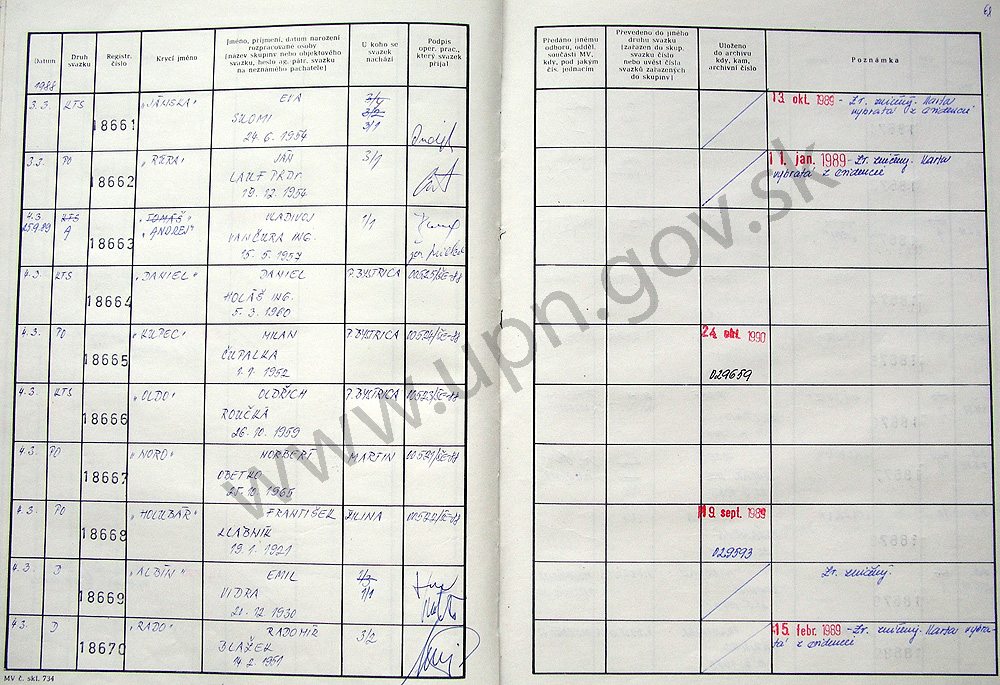 68
Datum
Druh svazku
Registr. číslo
Krycí jméno
Jméno, příjmení, datum narození
rozpracované osoby
(název skupiny nebo objektového
svazku, heslo ag. pátr. svazku
na neznámého pachatele)
U koho se
svazek
nachází
Podpis
oper. prac.,
který svazek
přijal
Předáno jinému
odboru, odděl.
součásti MV,
kdy, pod jakým
čís. jednacím
Převedeno do jiného
druhu svazku
(zařazen do skup.
svazku číslo
nebo uvést čísla
svazků zařazených
do skupiny)
Uloženo
do archivu
kdy, kam,
archivní číslo
Poznámka
1988
3.3. KTS 18661 "JÁNSKA" EVA
SALOMI
24. 6. 1954
3/4
3/2
3/1
13. okt. 1989 - Zv. zničený. Karta
vybratá z evidencie
3.3. PO 18662 JÁN
LAUF PhDr.
19. 12. 1954
3/1
11. jan. 1989 - Zv. zničený. Karta
vybratá z evidencie
4.3. KTS 18663 "TOMÁŠ"
25.9.89 A "ANDREJ"
VLADIVOJ
VANČURA ING.
15. 5. 1957
1/1
4.3. KTS 18664 "DANIEL" DANIEL
HOLÁŠ ING.
5. 3. 1960
P. BYSTRICA
4.3. PO 18665 "KUPEC" MILAN
ČUPALKA
1. 1. 1952
P. BYSTRICA
24. okt. 1990
029659
4.3. KTS 18666 "OLDO" OLDŘICH
ROUČKA
26. 10. 1959
P. BYSTRICA
4.3. PO 18667 "NORO" NORBERT
OBETKO
25. 10. 1965
MARTIN
4.3. PO 18668 "HOLUBÁR" FRANTIŠEK
HLÁBNIK
19. 1. 1921
ŽILINA
19. sept. 1989
029593
4.3. D 18669 "ALBÍN" EMIL
VIDRA
21. 12. 1930
1/3
1/1
Zv. zničený.
4.3. D 18670 "RADO" RADOMÍR
BLAŽEK
14. 2. 1951
3/2
15. febr. 1989 - Zv. zničený. Karta vybra-
tá z evidencie
MV č. skl. 734
www.upn.gov.sk